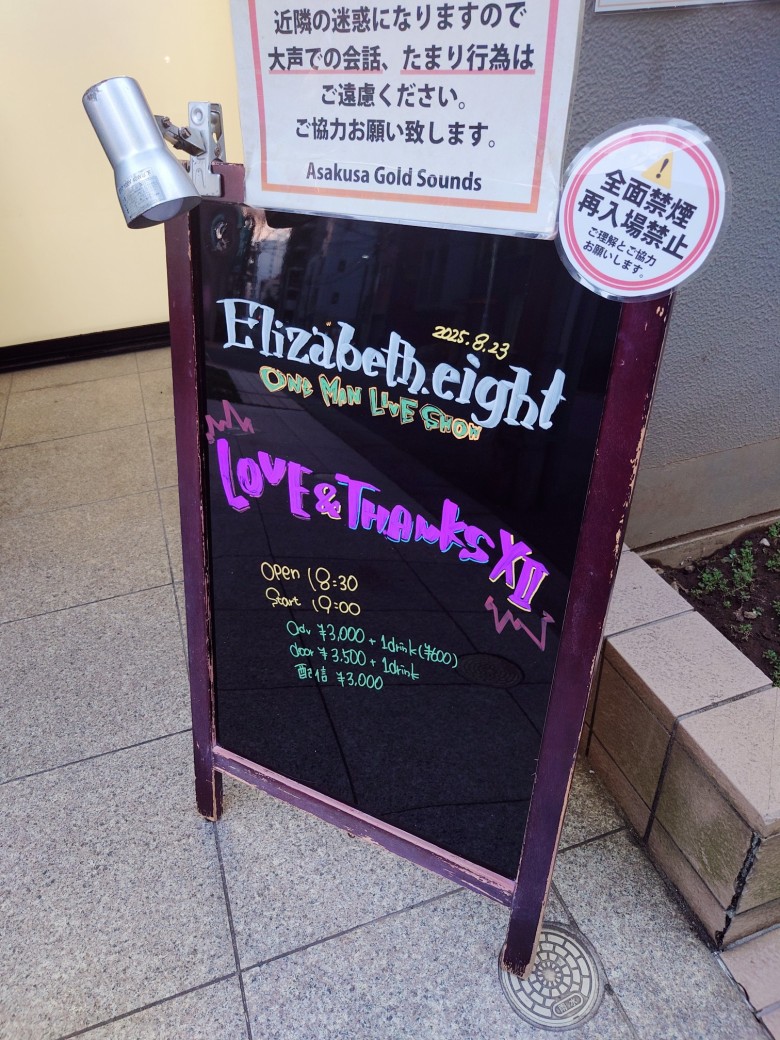 近隣の迷惑になりますので
大声での会話、たまり行為は
ご遠慮ください。
ご協力お願い致します。
Asakusa Gold Sounds
全面禁煙
再入場禁止
ご理解とご協力
お願いします。
2025.8.23
Elizabeth.eight
ONE MAN LIVE SHOW
LOVE & THANKS XII
Open 18:30
Start 19:00
Adv ¥3,000 + 1drink (¥600)
door ¥3,500 + 1drink
配信 ¥3,000